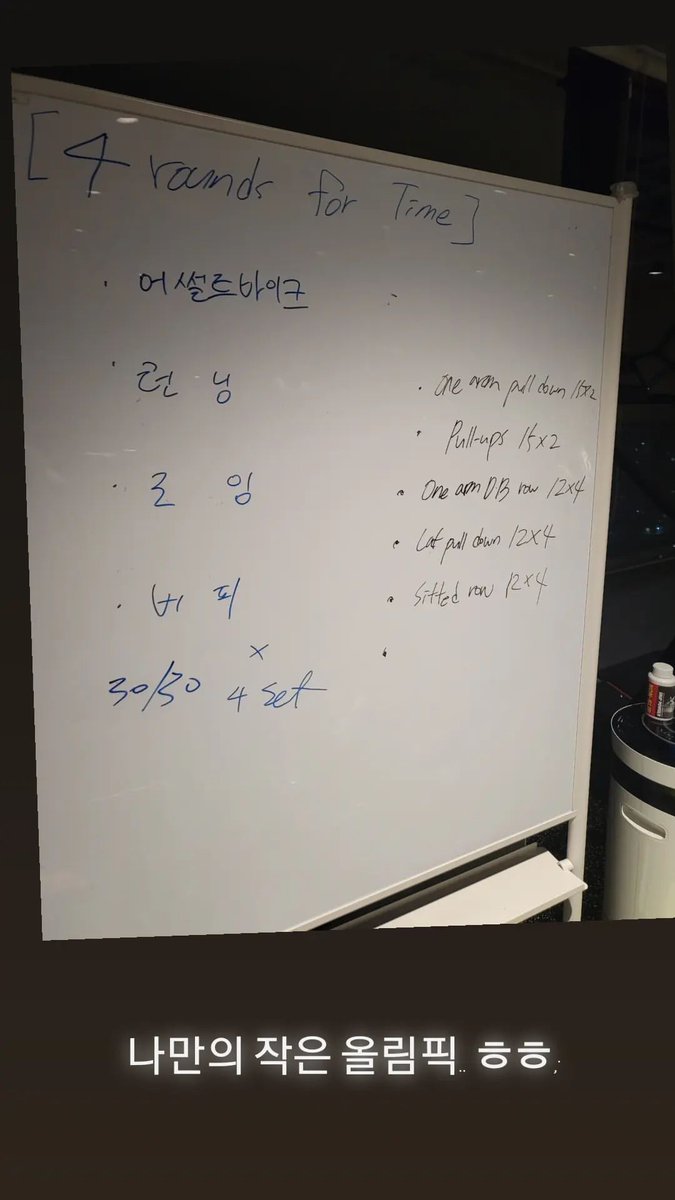 [4 rounds for Time]
· 어썰트바이크
· 런닝
· 로잉
· 버피
×
30/30 4 set
· One arm pull down 15x2
· Pull-ups 15x2
· One arm DB row 12x4
· Lat pull down 12x4
· Sitted row 12x4
·
나만의 작은 올림픽.. ㅎㅎ;